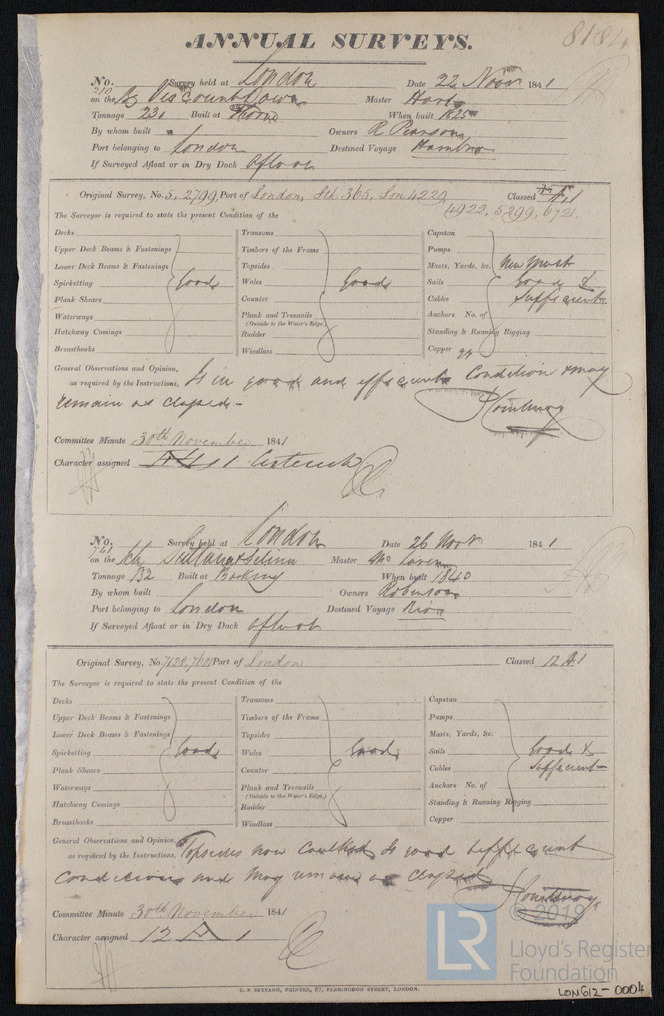 8184
ANNUAL SURVEYS.
No. 210 Survey held at London Date 22 Novr 1841
on the Viscount Down Master Hart
Tonnage 231 Built at Thorne When built 1825
By whom built " Owners R Pearson
Port belonging to London Destined Voyage Hambro
If Surveyed Afloat or in Dry Dock Afloat
Original Survey, No. 5, 2799, Port of London, Sth 365, Lon 4229 Classed
4922, 5299, 6721
The Surveyor is required to state the present Condition of the
Decks Transoms Capstan
Upper Deck Beams & Fastenings Timbers of the Frame Pumps
Lower Deck Beams & Fastenings Topsides Masts, Yards, &c. New
Spirketting Good Wales Good Sails Good &
Plank Shears Counter Cables Sufficient
Waterways Plank and Treenails (Outside to the Water's Edge.) Anchors No. of
Hatchway Comings Rudder Standing & Running Rigging
Breasthooks Windlass Copper
General Observations and Opinion, Is in good and efficient Condition & may
as required by the Instructions,
remain as classed -
Courtenay
Committee Minute 30th November 1841
Character assigned Æ 1 Asterisk
No. 761 Survey held at London Date 26 Novr 1841
on the Sultana & Selina Master
Tonnage 132 Built at Barking When built 1840
By whom built Owners Robinson
Port belonging to London Destined Voyage Rio
If Surveyed Afloat or in Dry Dock Afloat
Original Survey, No. 7128, 7601 Port of London Classed 12 A 1
The Surveyor is required to state the present Condition of the
Decks Transoms Capstan
Upper Deck Beams & Fastenings Timbers of the Frame Pumps
Lower Deck Beams & Fastenings Topsides Masts, Yards, &c.
Spirketting Good Wales Good Sails Good &
Plank Shears Counter Cables Sufficient
Waterways Plank and Treenails (Outside to the Water's Edge.) Anchors No. of
Hatchway Comings Rudder Standing & Running Rigging
Breasthooks Windlass Copper
General Observations and Opinion, Topsides now Caulked Is good & efficient
as required by the Instructions,
Condition and may remain as classed
Courtenay
Committee Minute 30th November 1841
Character assigned 12 A 1
© 2019
LR Lloyd's Register
Foundation
C. F. SEYFANG, PRINTER, 57, FARRINGDON STREET, LONDON.
LON612-0004